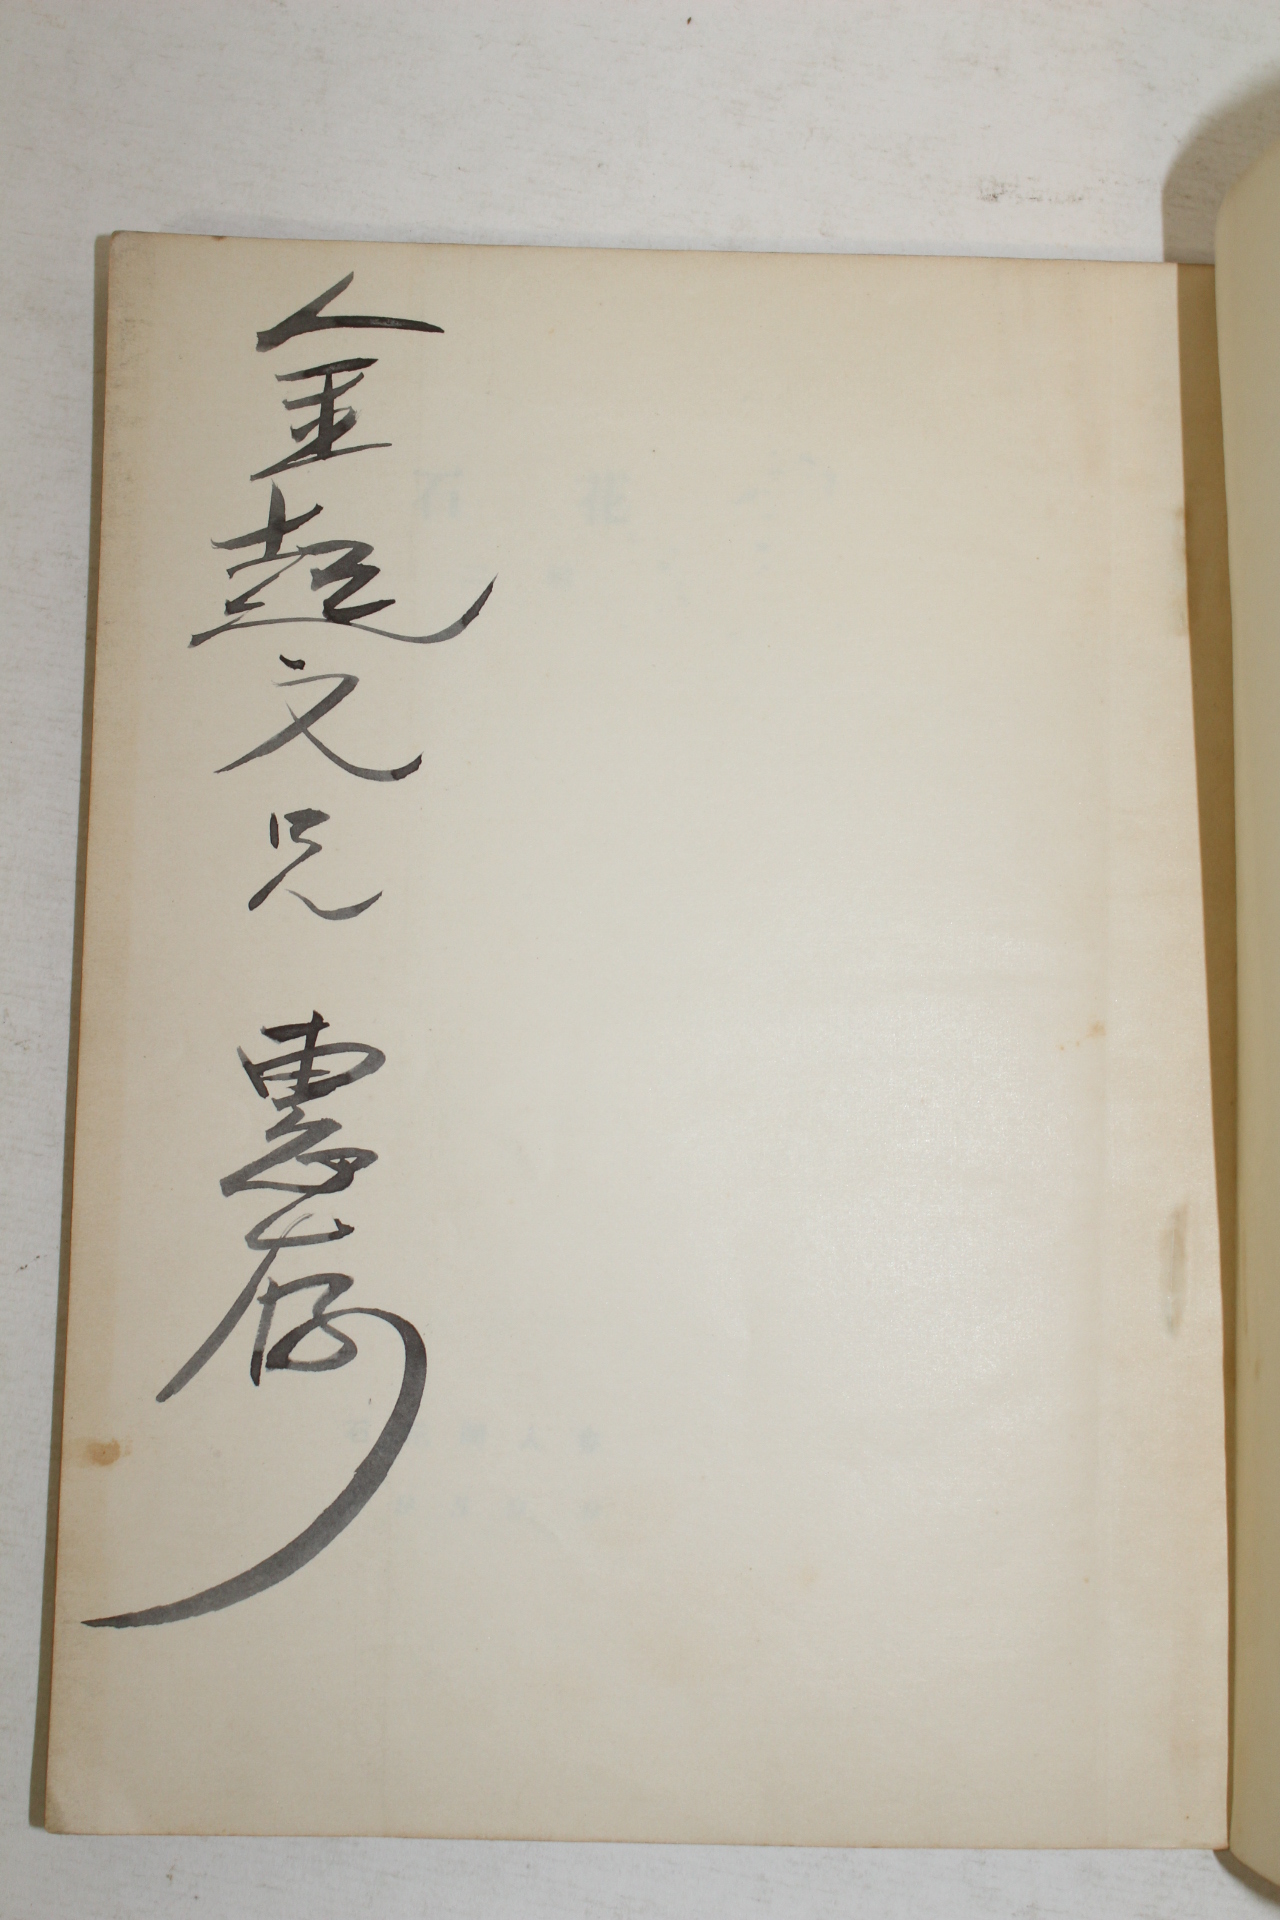 金起文兄 惠存